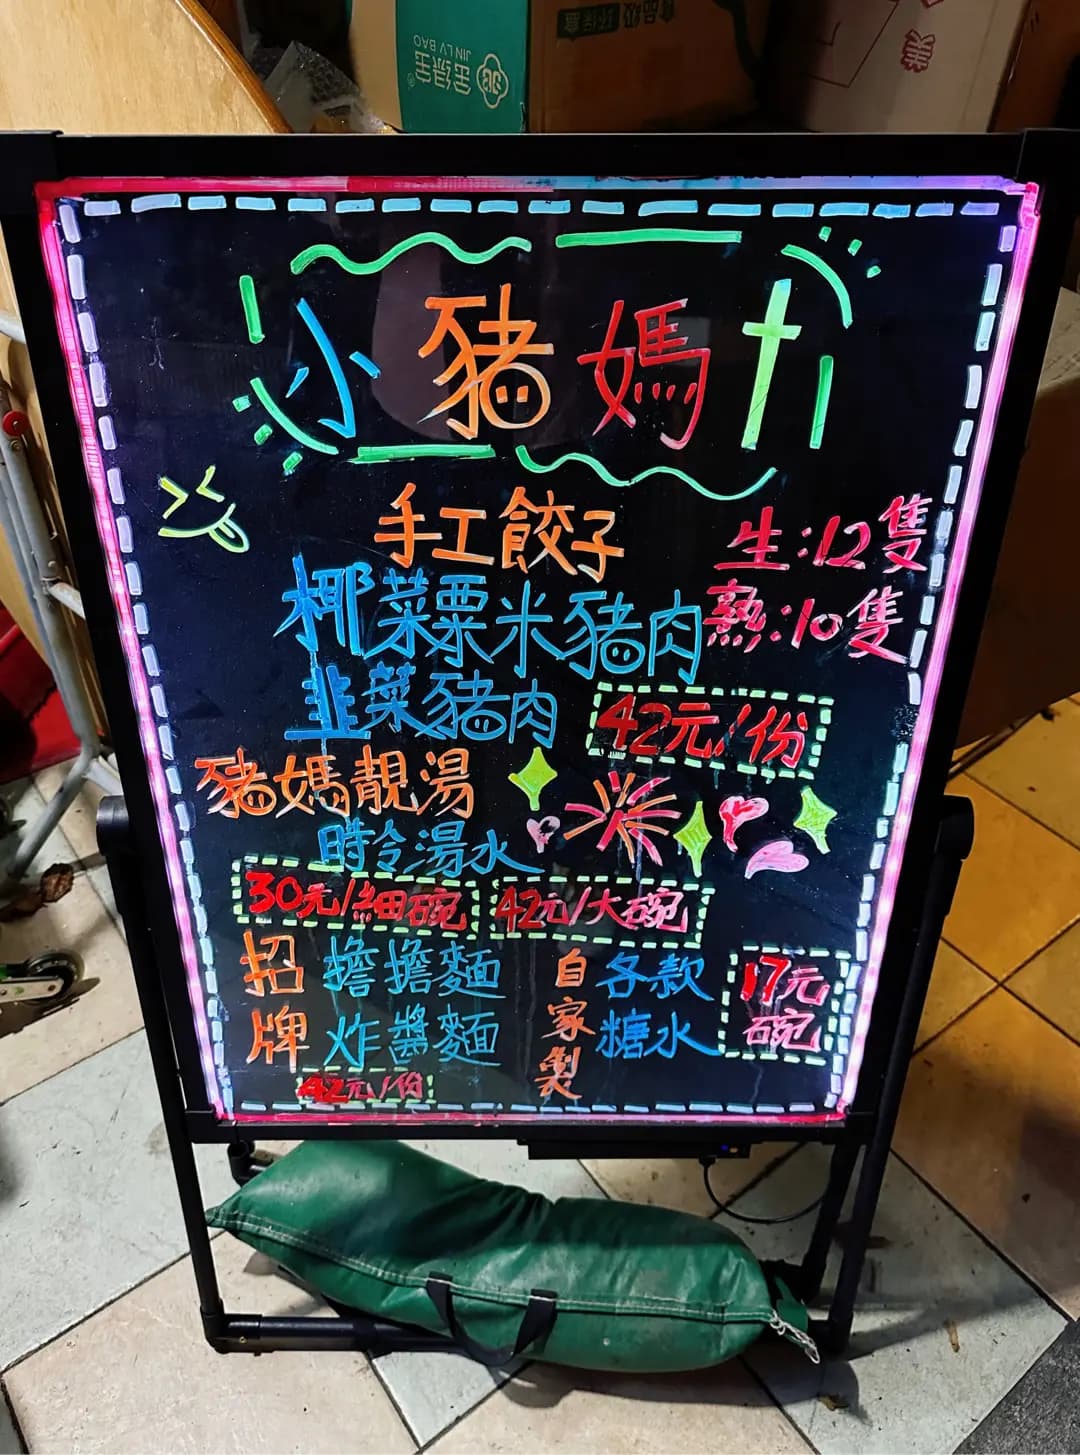 金绿宝
JIN LV BAO
食品级
小豬媽
手工餃子
生:12隻
熟:10隻
椰菜粟米豬肉
韭菜豬肉
42元/份
豬媽靚湯
時令湯水
30元/細碗
42元/大碗
招牌
擔擔麵
炸醬麵
42元/份
自家製
各款
糖水
17元
碗